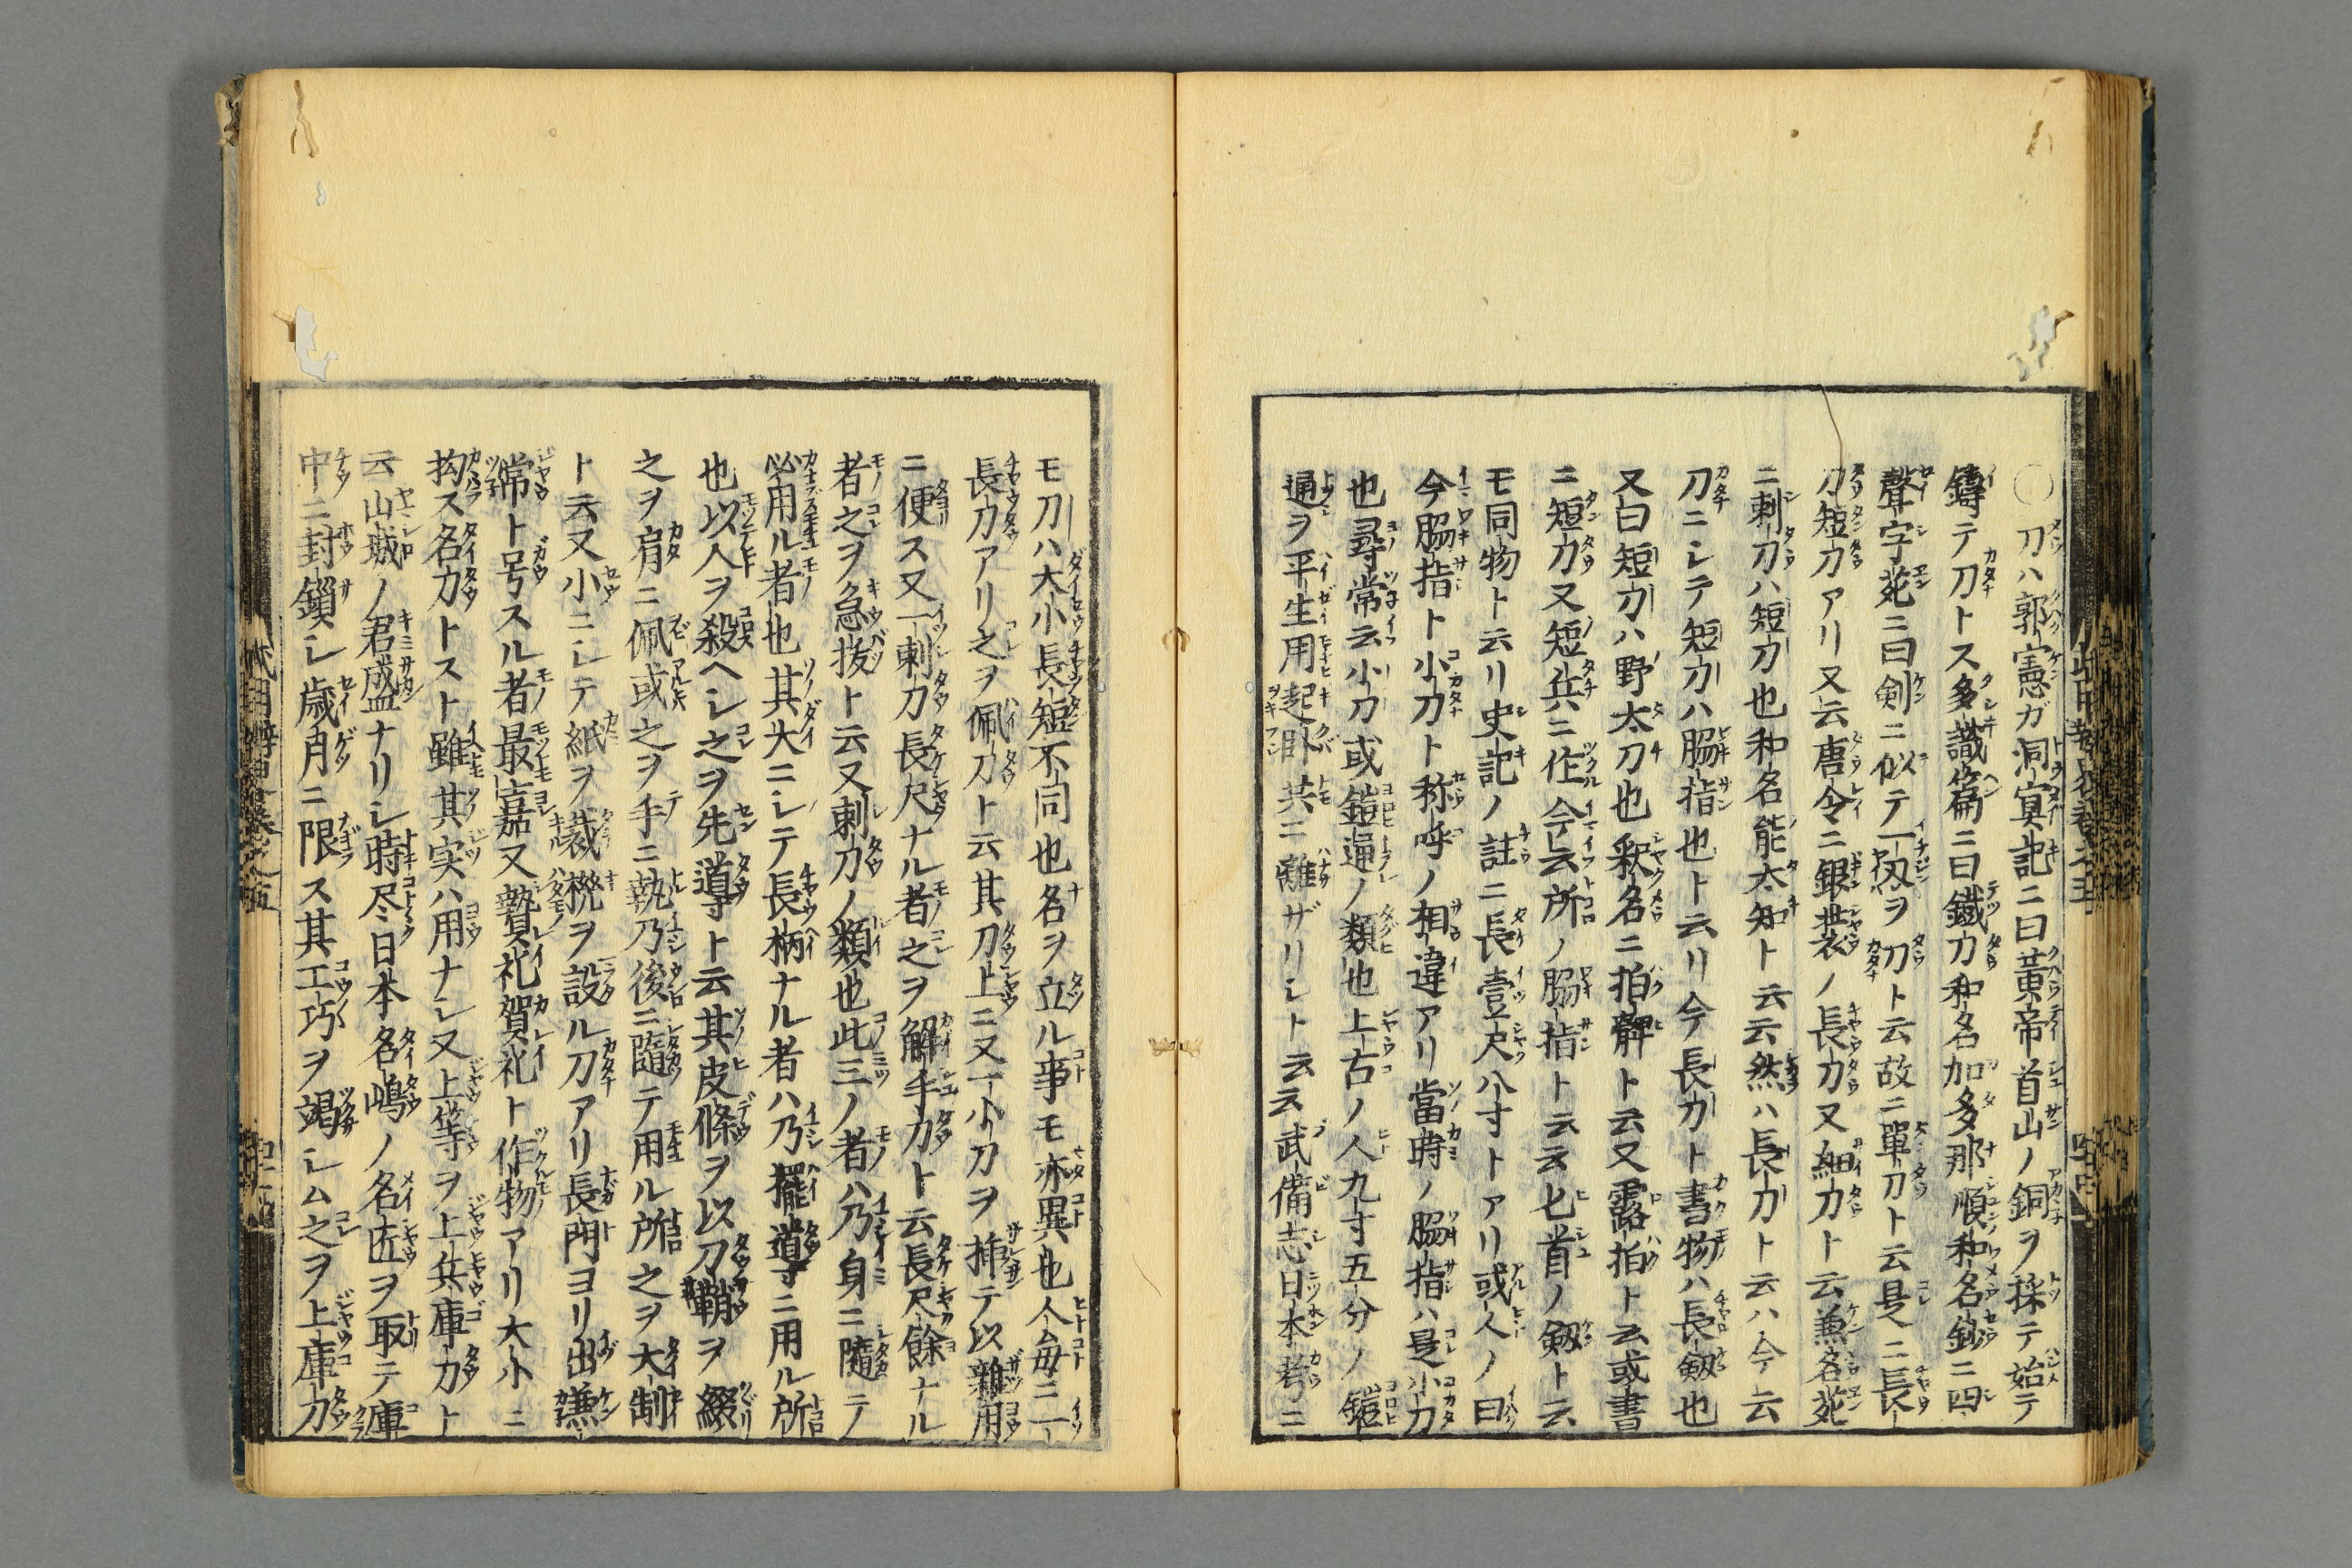 〇刀ハ郭憲ガ洞冥記ニ曰黄帝首山ノ銅ヲ採テ始テ
鑄テ刀トス多識篇ニ曰鐵刀和名加多那順和名鈔ニ四
聲字苑ニ曰剣ニ似テ一刄ヲ刀ト云故ニ單刀ト云是ニ長
刀短刀アリ又云唐令ニ銀装ノ長刀又細刀ト云兼名苑
ニ刺刀ハ短刀也和名能太知ト云云然ハ長刀ト云ハ今云
刀ニシテ短刀ハ脇指也ト云リ今長刀ト書物ハ長劔也
又曰短刀ハ野太刀也釈名ニ拍髀ト云又露拍ト云或書
ニ短刀又短兵ニ作今云所ノ脇指ト云云匕首ノ劔ト云
モ同物ト云リ史記ノ註ニ長壹尺八寸トアリ或人ノ曰
今脇指ト小刀ト称呼ノ相違アリ當時ノ脇指ハ是小刀
也尋常云小刀或鎧通ノ類也上古ノ人九寸五分ノ鎧
通ヲ平生用起卧共ニ離ザリシト云云武備志日本考ニ
モ刀ハ大小長短不同也名ヲ立ル事モ亦異也人毎ニ一
長刀アリ之ヲ佩刀ト云其刀上ニ又一小刀ヲ挿テ以雜用
ニ便ス又一刺刀長尺ナル者之ヲ解手刀ト云長尺餘ナル
者之ヲ急抜ト云又刺刀ノ類也此三ノ者ハ乃身ニ隨テ
必用ル者也其大ニシテ長柄ナル者ハ乃擺導ニ用ル所
也以人ヲ殺ヘシ之ヲ先導ト云其皮條ヲ以刀鞘ヲ綴
之ヲ肩ニ佩或之ヲ手ニ執乃後ニ隨テ用ル所之ヲ大制
ト云又小ニシテ紙ヲ裁機ヲ設ル刀アリ長門ヨリ出謙
常ト号スル者最嘉又贄礼賀礼ト作物アリ大小ニ
拘ス名刀トスト雖其実ハ用ナシ又上等ヲ上兵庫刀ト
云山城ノ君盛ナリシ時尽日本名嶋ノ名匠ヲ取テ庫
中ニ封鎖シ歳月ニ限ス其工巧ヲ竭シム之ヲ上庫刀